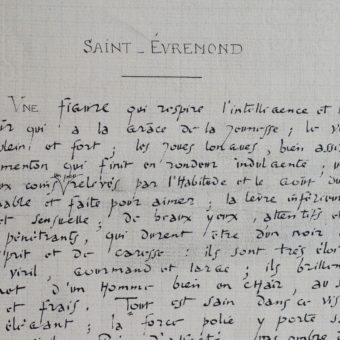 SAINT-ÉVREMOND
UNE figure qui respire l'intelligence et
qui a la Grâce de la Jeunesse; le
plein et fort; les joues longues, bien
menton qui finit en rondeur indulgente,
coins relevés par l'Habitude et le Goût du
able et faite pour aimer; la lèvre inférieure
et sensuelle; de beaux yeux, attentifs et
pénétrants, qui durent être d'un noir
prit et de caresse: ils sont très
viril, gourmand et large; ils
et d'un Homme bien en CHAIR, au
et frais. Tout est sain dans ce
élégant; la force polie y porte